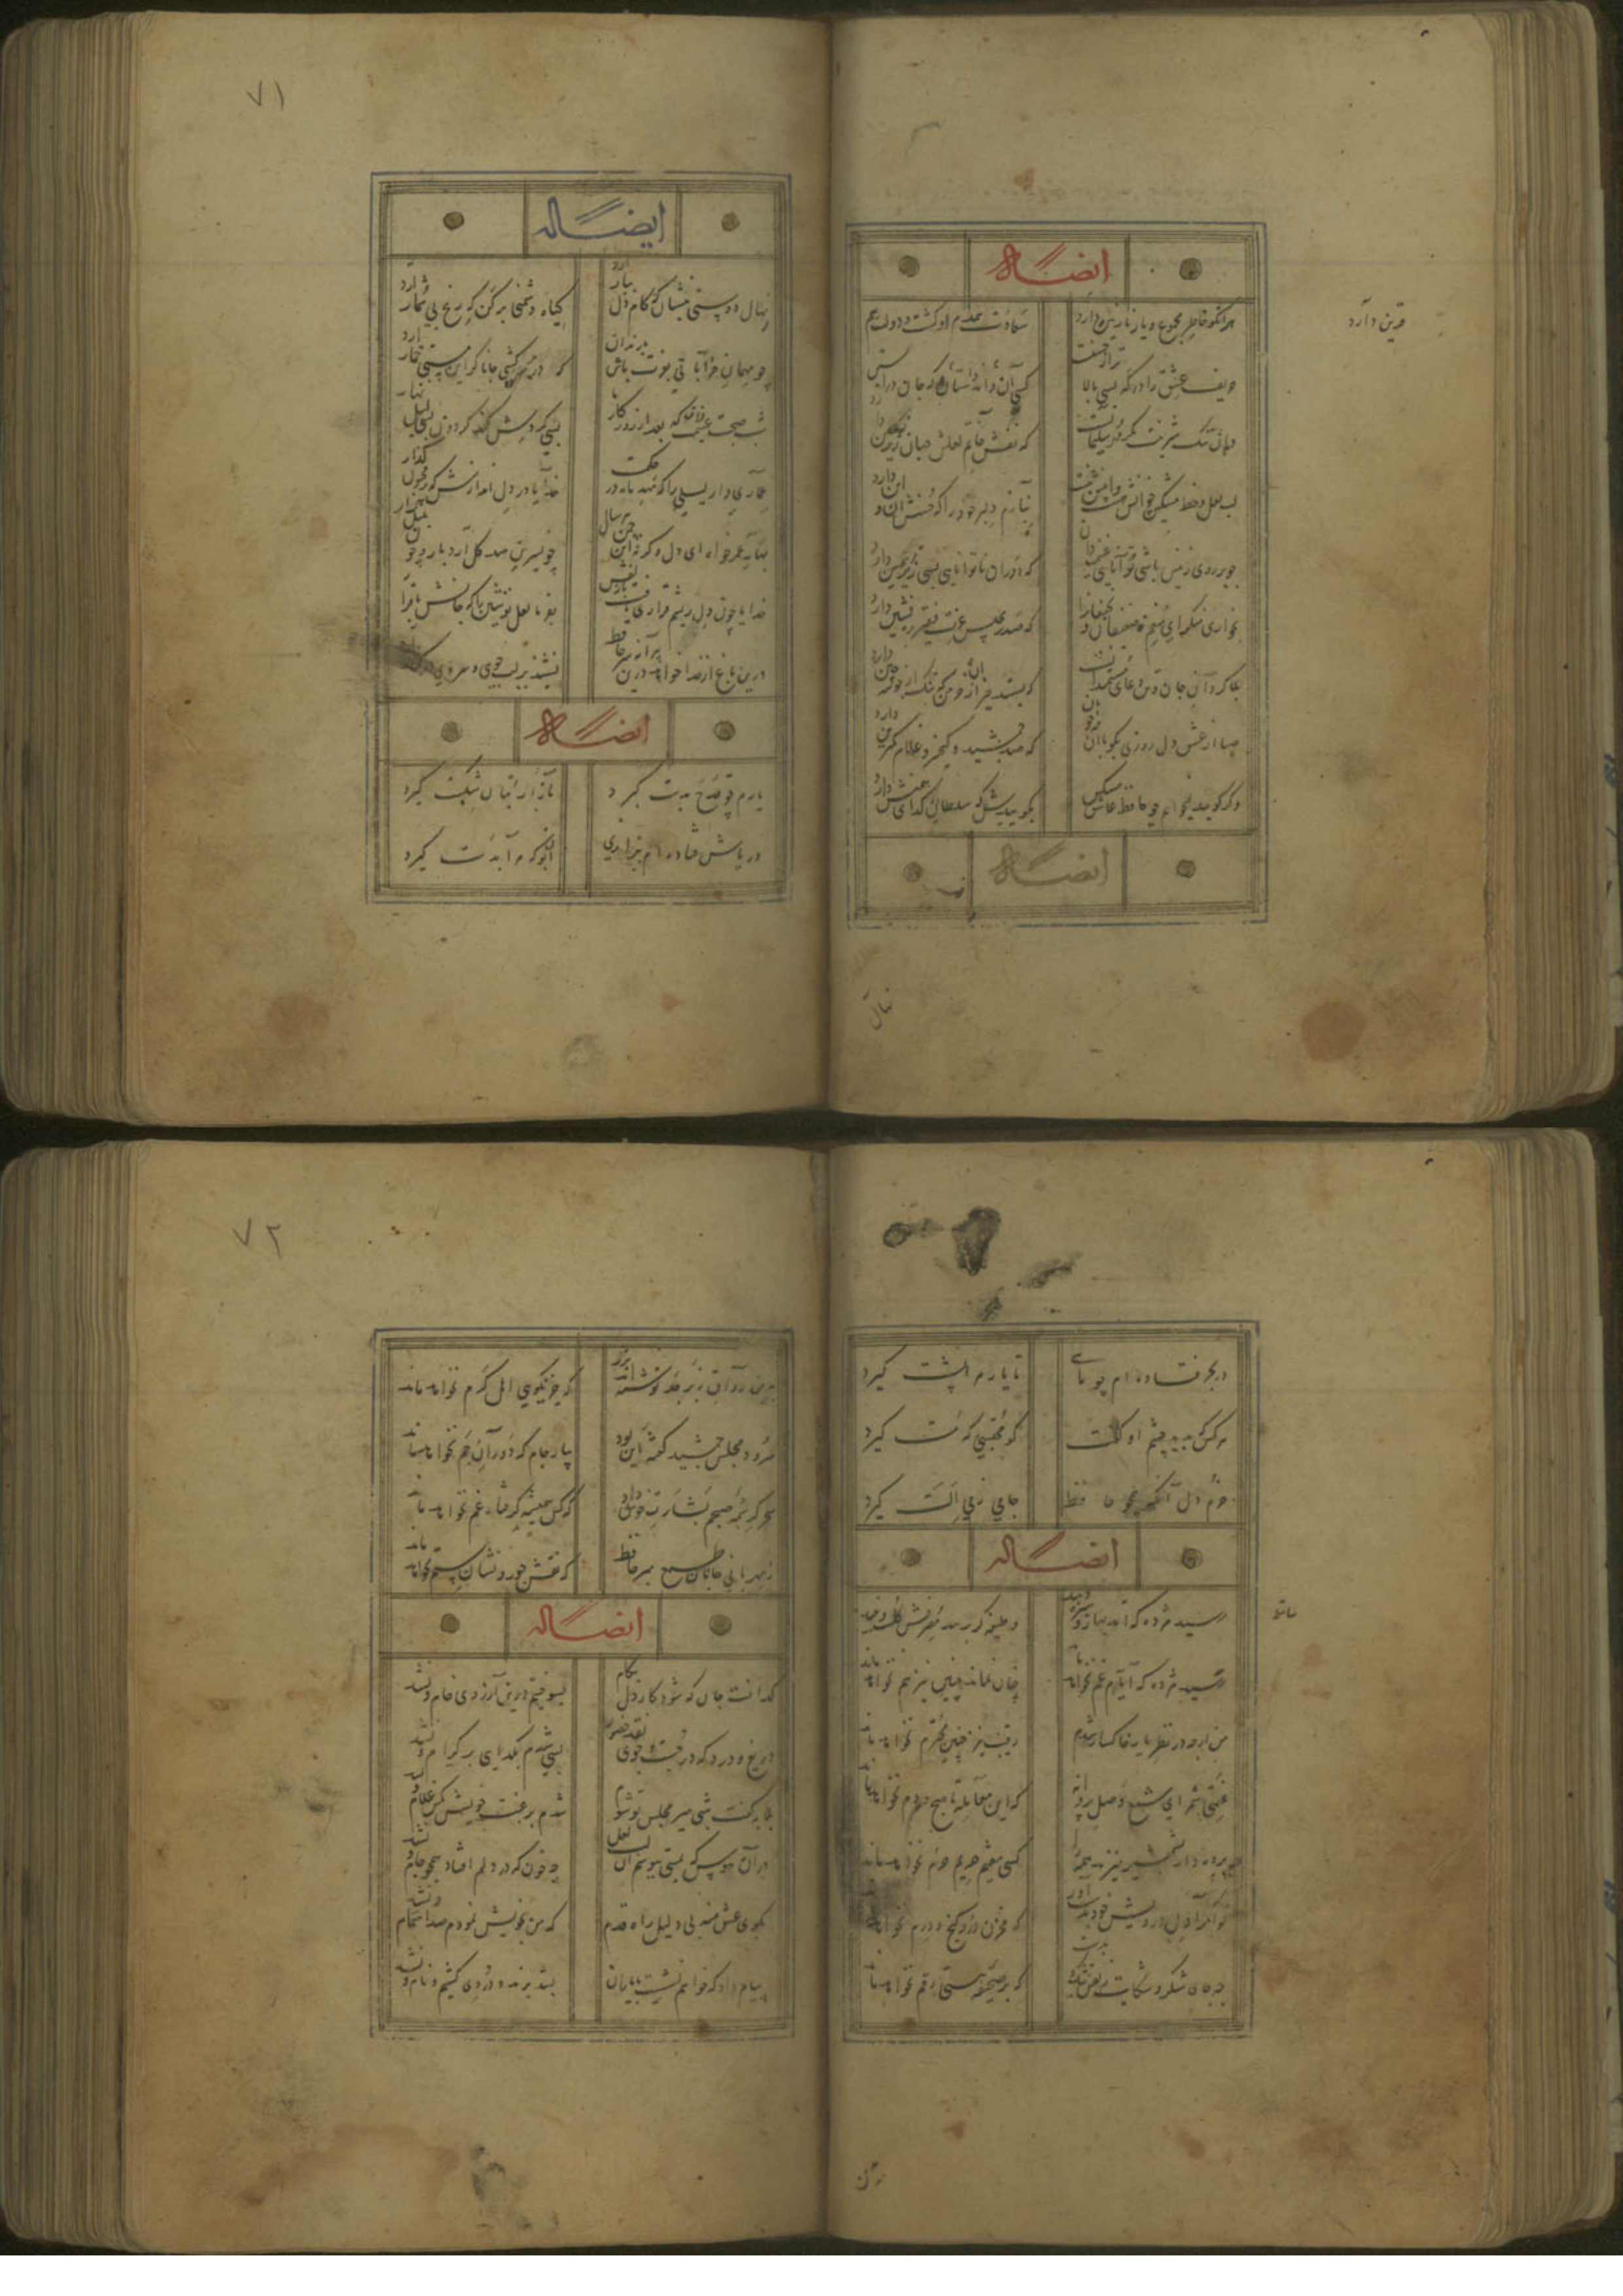 ایضاله
هر آنکو خاطر مجموع و یار نازنین دارد
سعادت همدم او گشت و دولت هم
قرین دارد
حریم عشق را درگه بسی بالاتر از عقلست
کسی آن آستان بوسد که جان در آستین
دارد
دهان تنگ شیرینت مگر مهر سلیمانست
که نقش خاتم لعلش جهان زیر نگین دارد
لب لعل و خط مشکین چو آنش هست و اینش هست
بنازم دلبر خود را که حسنش آن و این دارد
چو بر روی زمین باشی توانایی غنیمت دان
که دوران ناتوانایی بسی زیر زمین دارد
بخواری منگر ای منعم ضعیفان و نحیفانرا
که صدر مجلس عزت فقیر ره‌نشین دارد
بلاگردان جان و تن دعای مستمندانست
که بیند خیر از آن خرمن که ننگ از خوشه چین دارد
صبا از عشق دل رمزی بگو با آن شه خوبان
که صد جمشید و کیخسرو غلام کمترین دارد
وگر گوید نمیخواهم چو حافظ عاشق مسکین
بگوییدش که سلطانی گدایی همنشین دارد
ایضاله
نهال
۷۱
ایضاله
نهال دوستی بنشان که کام دل ببار آرد
گیاه دشمنی برکن که رنج بی شمار آرد
چو مهمان خراباتی بعزت باش با رندان
که درد سر کشی جانا گر این مستی خمار آرد
شب صحبت غنیمت دان که بعد از روزگار ما
بسی گردش کند گردون بسی لیل و نهار آرد
عماری دار لیلی را که مهد ماه در حکمست
خدایا در دل اندازش که بر مجنون گذار آرد
بهار عمر خواه ای دل وگرنه این چمن هر سال
چو نسرین صد گل آرد بار و چون بلبل هزار آرد
خدا را چون دل ریشم قراری بست با زلفش
بفرما لعل نوشین را که جانش با قرار آرد
درین باغ ار خدا خواهد درین پیرانه سر حافظ
نشیند بر لب جوی و سروی در کنار
ایضاله
یارم چو قدح بدست گیرد
بازار بتان شکست گیرد
در پاش فتاده‌ام بزاری
آیا بود آنکه دست گیرد
در بحر فتاده‌ام چو ماهی
تا یار مرا بشست گیرد
هر کس که بدید چشم او گفت
کو محتسبی که مست گیرد
خرم دل آنکه همچو حافظ
جامی ز می الست گیرد
ایضاله
رسید مژده که آمد بهار و سبزه دمید
وظیفه گر برسد مصرفش گلست و نبید
رسید مژده که ایام غم نخواهد ماند
چنان نماند چنین نیز هم نخواهد ماند
من ارچه در نظر یار خاکسار شدم
رقیب نیز چنین محترم نخواهد ماند
غنیمتی شمر ای شمع وصل پروانه
که این معامله تا صبحدم نخواهد ماند
چو پرده‌دار بشمشیر میزند همه را
کسی مقیم حریم حرم نخواهد ماند
توانگرا دل درویش خود بدست آور
که مخزن زر و گنج و درم نخواهد ماند
چه جای شکر و شکایت ز نقش نیک و بدست
که بر صحیفه هستی رقم نخواهد ماند
برین
۷۲
برین رواق زبرجد نوشته‌اند بزر
که جز نکویی اهل کرم نخواهد ماند
سرود مجلس جمشید گفته‌اند این بود
بیار جام که دوران جم نخواهد ماند
سحر کرشمه صبحم بشارتی خوش داد
که کس همیشه گرفتار غم نخواهد ماند
ز مهربانی جانان طمع مبر حافظ
که نقش جور و نشان ستم نخواهد ماند
ایضاله
گداخت جان که شود کار دل تمام
بسوختیم درین آرزوی خام و نشد
دریغ و درد که در جست و جوی گنج حضور
بسی شدم بگدایی بر کرام و نشد
بلابه گفت شبی میر مجلس تو شوم
شدم برغبت خویشش کمین غلام و نشد
در آن هوس که بمستی ببوسم آن لب لعل
چه خون که در دلم افتاد همچو جام و نشد
بکوی عشق منه بی دلیل راه قدم
که من بخویش نمودم صد اهتمام و نشد
پیام داد که خواهم نشست با رندان
بشد برندی و دردی کشیم نام و نشد